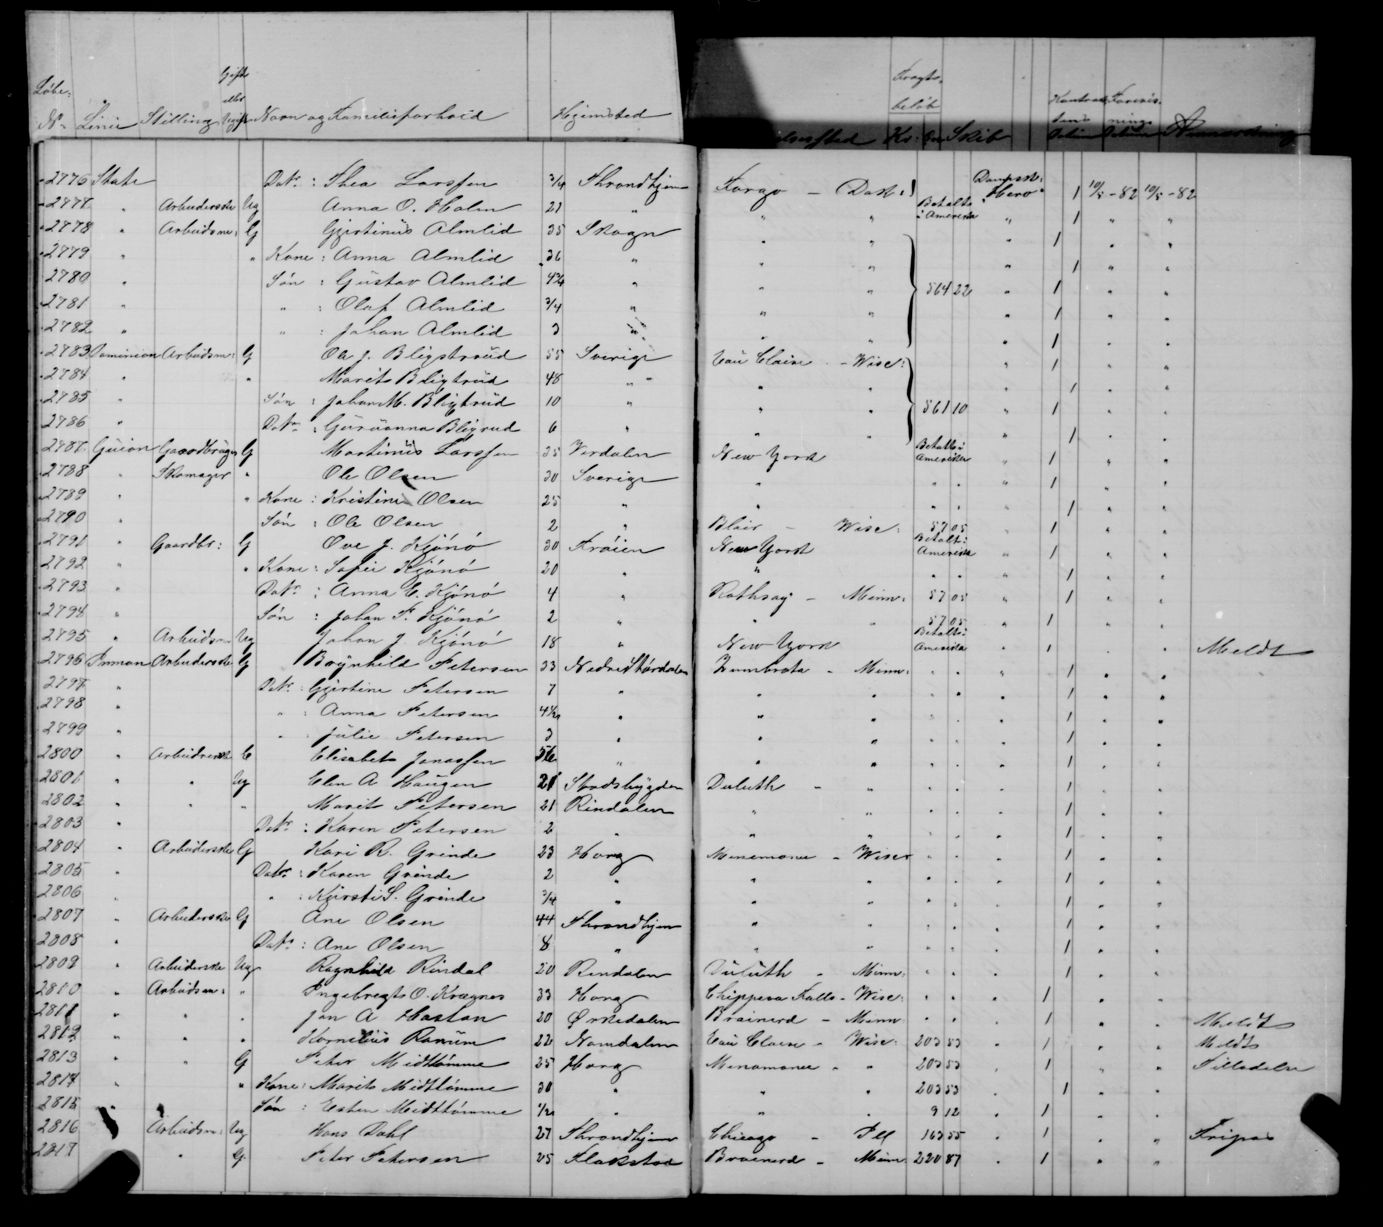 Løbe: Gifte eller Fragt- beløb Kontrac- Forevis-
No Linie Stilling Ugift Navn og Familieforhold Hjemsted Kr: Øre Skib tens Datum nings Datum Anmærkning
2776 State Datr: Thea Larssen 3/4 Throndhjem Fargo - Dak: Dampsk: "Hero" 1 10/5-82 10/5-82
2777 " Arbeiderske Ug Anna O. Holen 21 " " " Betalt i Amerika " 1 " "
2778 " Arbeidsm: G Gjertinius Almlid 35 Skogn " " " 1 " "
2779 " " Kone: Anna Almlid 36 " " " " 1 " "
2780 " Søn: Gustav Almlid 4 3/4 " " " 564 22 " 1 " "
2781 " " : Olaf Almlid 3/4 " " " " 1 " "
2782 " " : Johan Almlid 3 " " " " 1 " "
2783 Dominion Arbeidsm: G Ole J. Bligstrud 55 Sverige Eau Claire - Wisc: " 1 " "
2784 " " Marit Bligtrud 48 " " " " 1 " "
2785 " Søn: Johan M. Bligtrud 10 " " " 561 10 " 1 " "
2786 " Datr: Guruanna Bligrud 6 " " " " 1 " "
2787 Guion Gaardbruger G Martinius Larssen 35 Verdalen New York Betalt i Amerika " 1 " "
2788 " Skomager " Ole Olsen 30 Sverige " " " " 1 " "
2789 " " Kone: Kristine Olsen 25 " " " " " 1 " "
2790 " Søn: Ole Olsen 2 " Blair - Wisc: 57 05 " 1 " "
2791 " Gaardbr: G Ove J. Kjønø 30 Frøien New York Betalt i Amerika " 1 " "
2792 " " Kone: Sofie Kjønø 20 " " " " " 1 " "
2793 " Datr: Anna E. Kjønø 4 " Rothsay - Minn: 57 05 " 1 " "
2794 " Søn: Johan P. Kjønø 2 " " " 57 05 " 1 " "
2795 " Arbeidsm Ug Johan J Kjønø 18 " New York Betalt i Amerika " 1 " " Meldt
2796 Inman Arbeiderske G Brynhild Petersen 33 Nedre Størdalen Zumbrota - Minn: " " " 1 " "
2797 " Datr: Gjertine Petersen 7 " " " " " " 1 " "
2798 " " : Anna Petersen 4 1/2 " " " " " " 1 " "
2799 " " Julie Petersen 3 " " " " " " 1 " "
2800 " Arbeiderske E Elisabet Jonassen 56 " " " " " " 1 " "
2801 " " Ug Elen A Haugen 21 Stadsbygden Duluth - " " " " 1 " "
2802 " " " Marit Petersen 21 Rindalen " " " " " 1 " "
2803 " Datr: Karen Petersen 2 " " " " " " 1 " "
2804 " Arbeiderske G Kari R. Grinde 23 Horg Menemonee - Wisc " " " 1 " "
2805 " Datr: Karen Grinde 2 " " " " " " 1 " "
2806 " " : Kjersti S. Grinde 3/4 " " " " " " 1 " "
2807 " Arbeiderske G Ane Olsen 44 Throndhjem " " " " " 1 " "
2808 " Datr: Ane Olsen 8 " " " " " " 1 " "
2809 " Arbeiderske Ug Ragnhild Rindal 20 Rindalen Duluth - Minn: " " " 1 " "
2810 " Arbeidsm: " Ingebregt O. Krægnes 33 Horg Chippewa Falls - Wisc: " " " 1 " "
2811 " " " Jon A Hostan 20 Ørkedalen Brainerd - Minn " " " 1 " " Meldt
2812 " " " Kornelius Ranum 22 Namdalen Eau Claire - Wisc: 203 53 " 1 " " Meldt
2813 " " G Peter Midttømme 25 Horg Menomonee - " 203 53 " 1 " " Tilladelse
2814 " " Kone: Marit Midttømme 30 " " " 203 53 " 1 " "
2815 Søn: Esten Midttømme 1/2 " " " 9 12 " 1 " "
2816 Arbeidsm: Ug Hans Dahl 27 Throndhjem Chicago - Ill 163 55 " 1 " " Fripas
2817 " G Peter Petersen 25 Flakstad Brainerd - Minn 220 87 " 1 " "